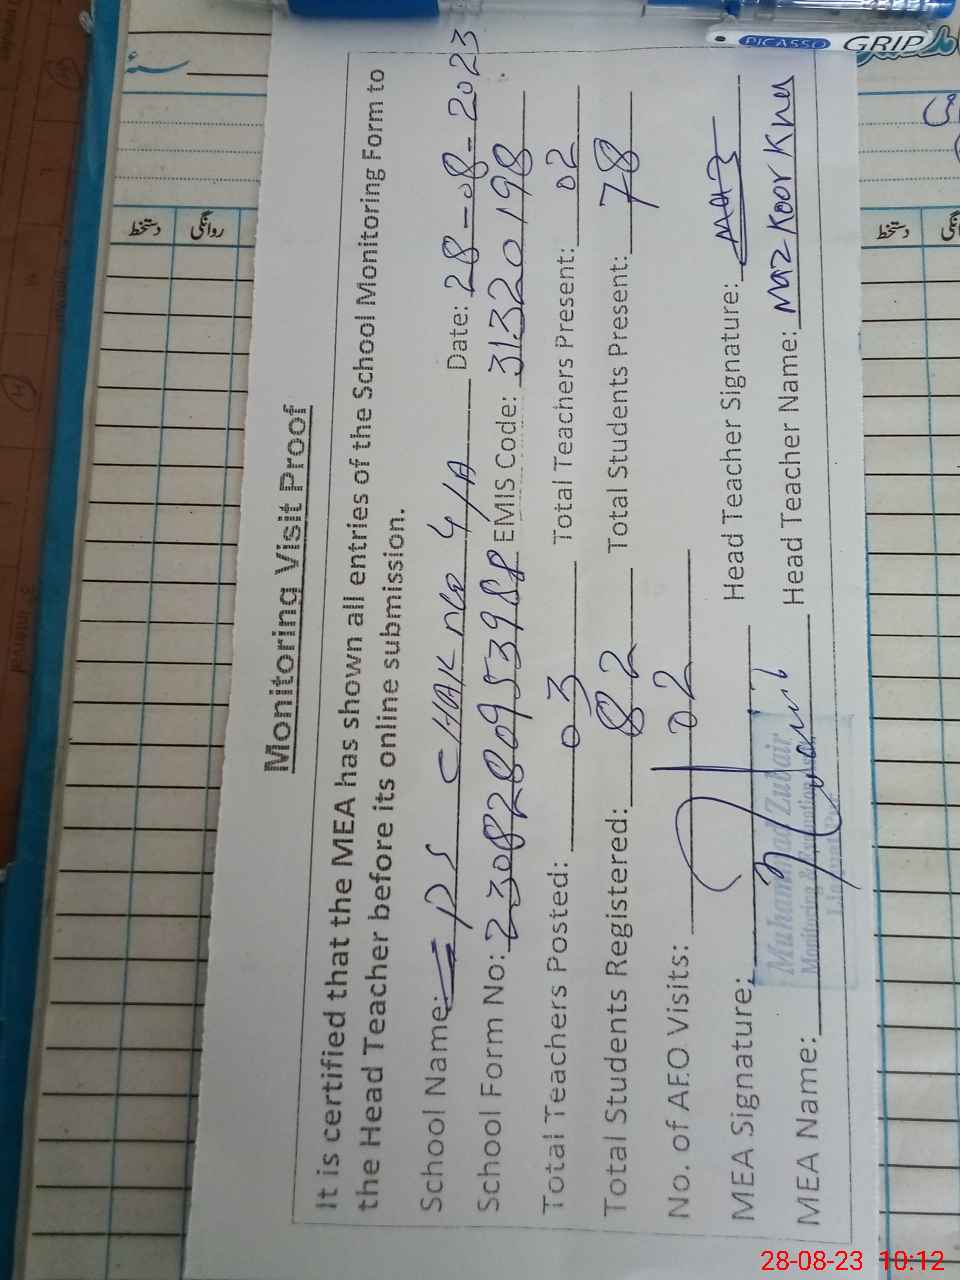 PICASSO GRIP
سنہ
دستخط
روانگی
دستخط
Monitoring Visit Proof
It is certified that the MEA has shown all entries of the School Monitoring Form to
the Head Teacher before its online submission.
School Name: PS CHAK no 4/A Date: 28-08-2023
School Form No: 2308280953988 EMIS Code: 31320198
Total Teachers Posted: 03 Total Teachers Present: 02
Total Students Registered: 82 Total Students Present: 78
No. of AEO Visits: 02
MEA Signature: Head Teacher Signature:
MEA Name: Head Teacher Name: Maz Koor
Muhammad Zubair
Monitoring & Evaluation
28-08-23 10:12